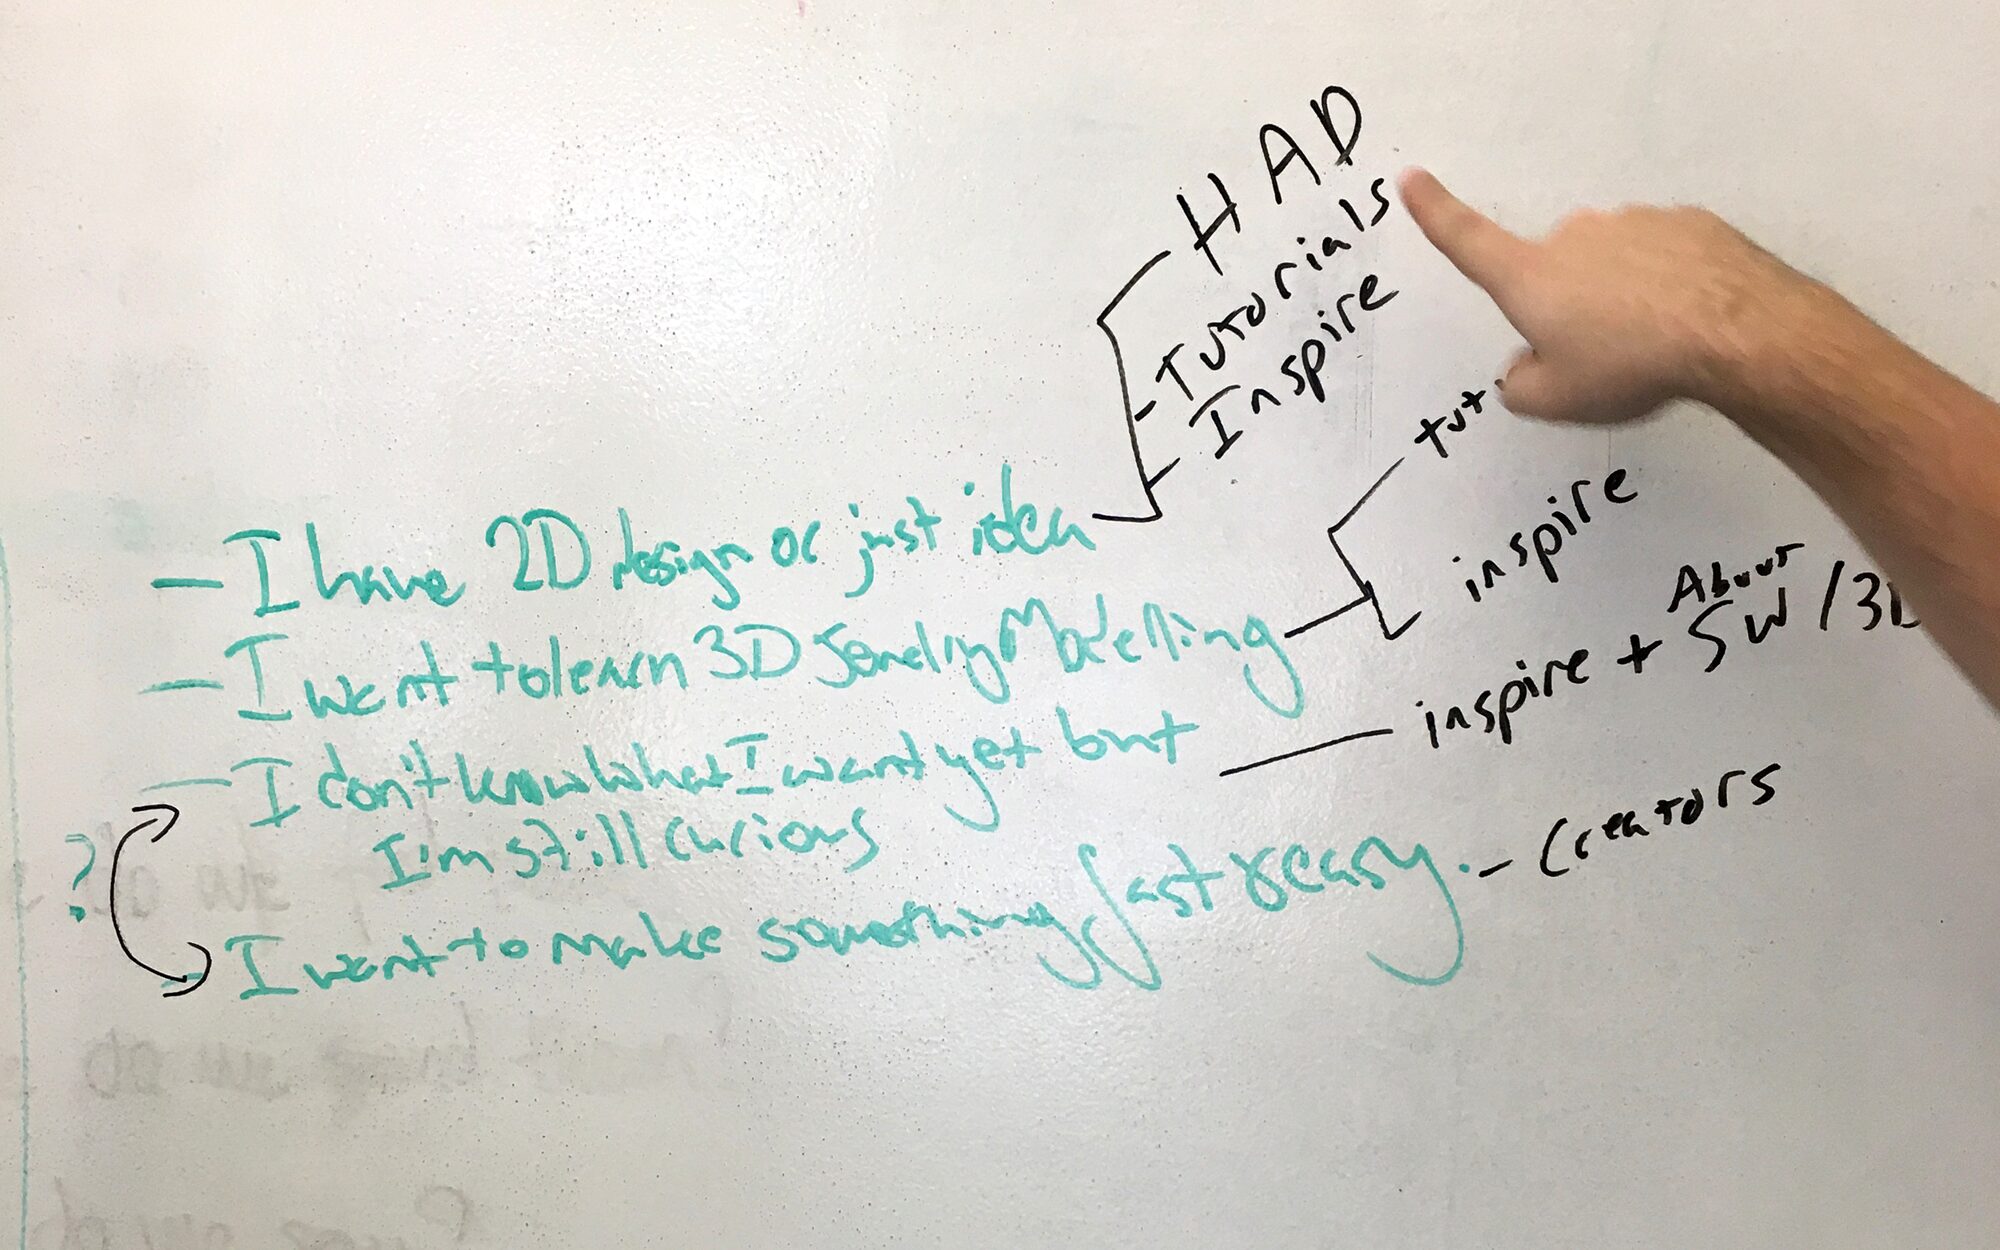 HAD
- Tutorials
- Inspire
- I have 2D design or just idea
tut
- I want to learn 3D Jewelry Modelling
inspire
- I don't know what I want yet but
I'm still curious
inspire + About SW / 3D
?
- I want to make something fast & easy. - Creators